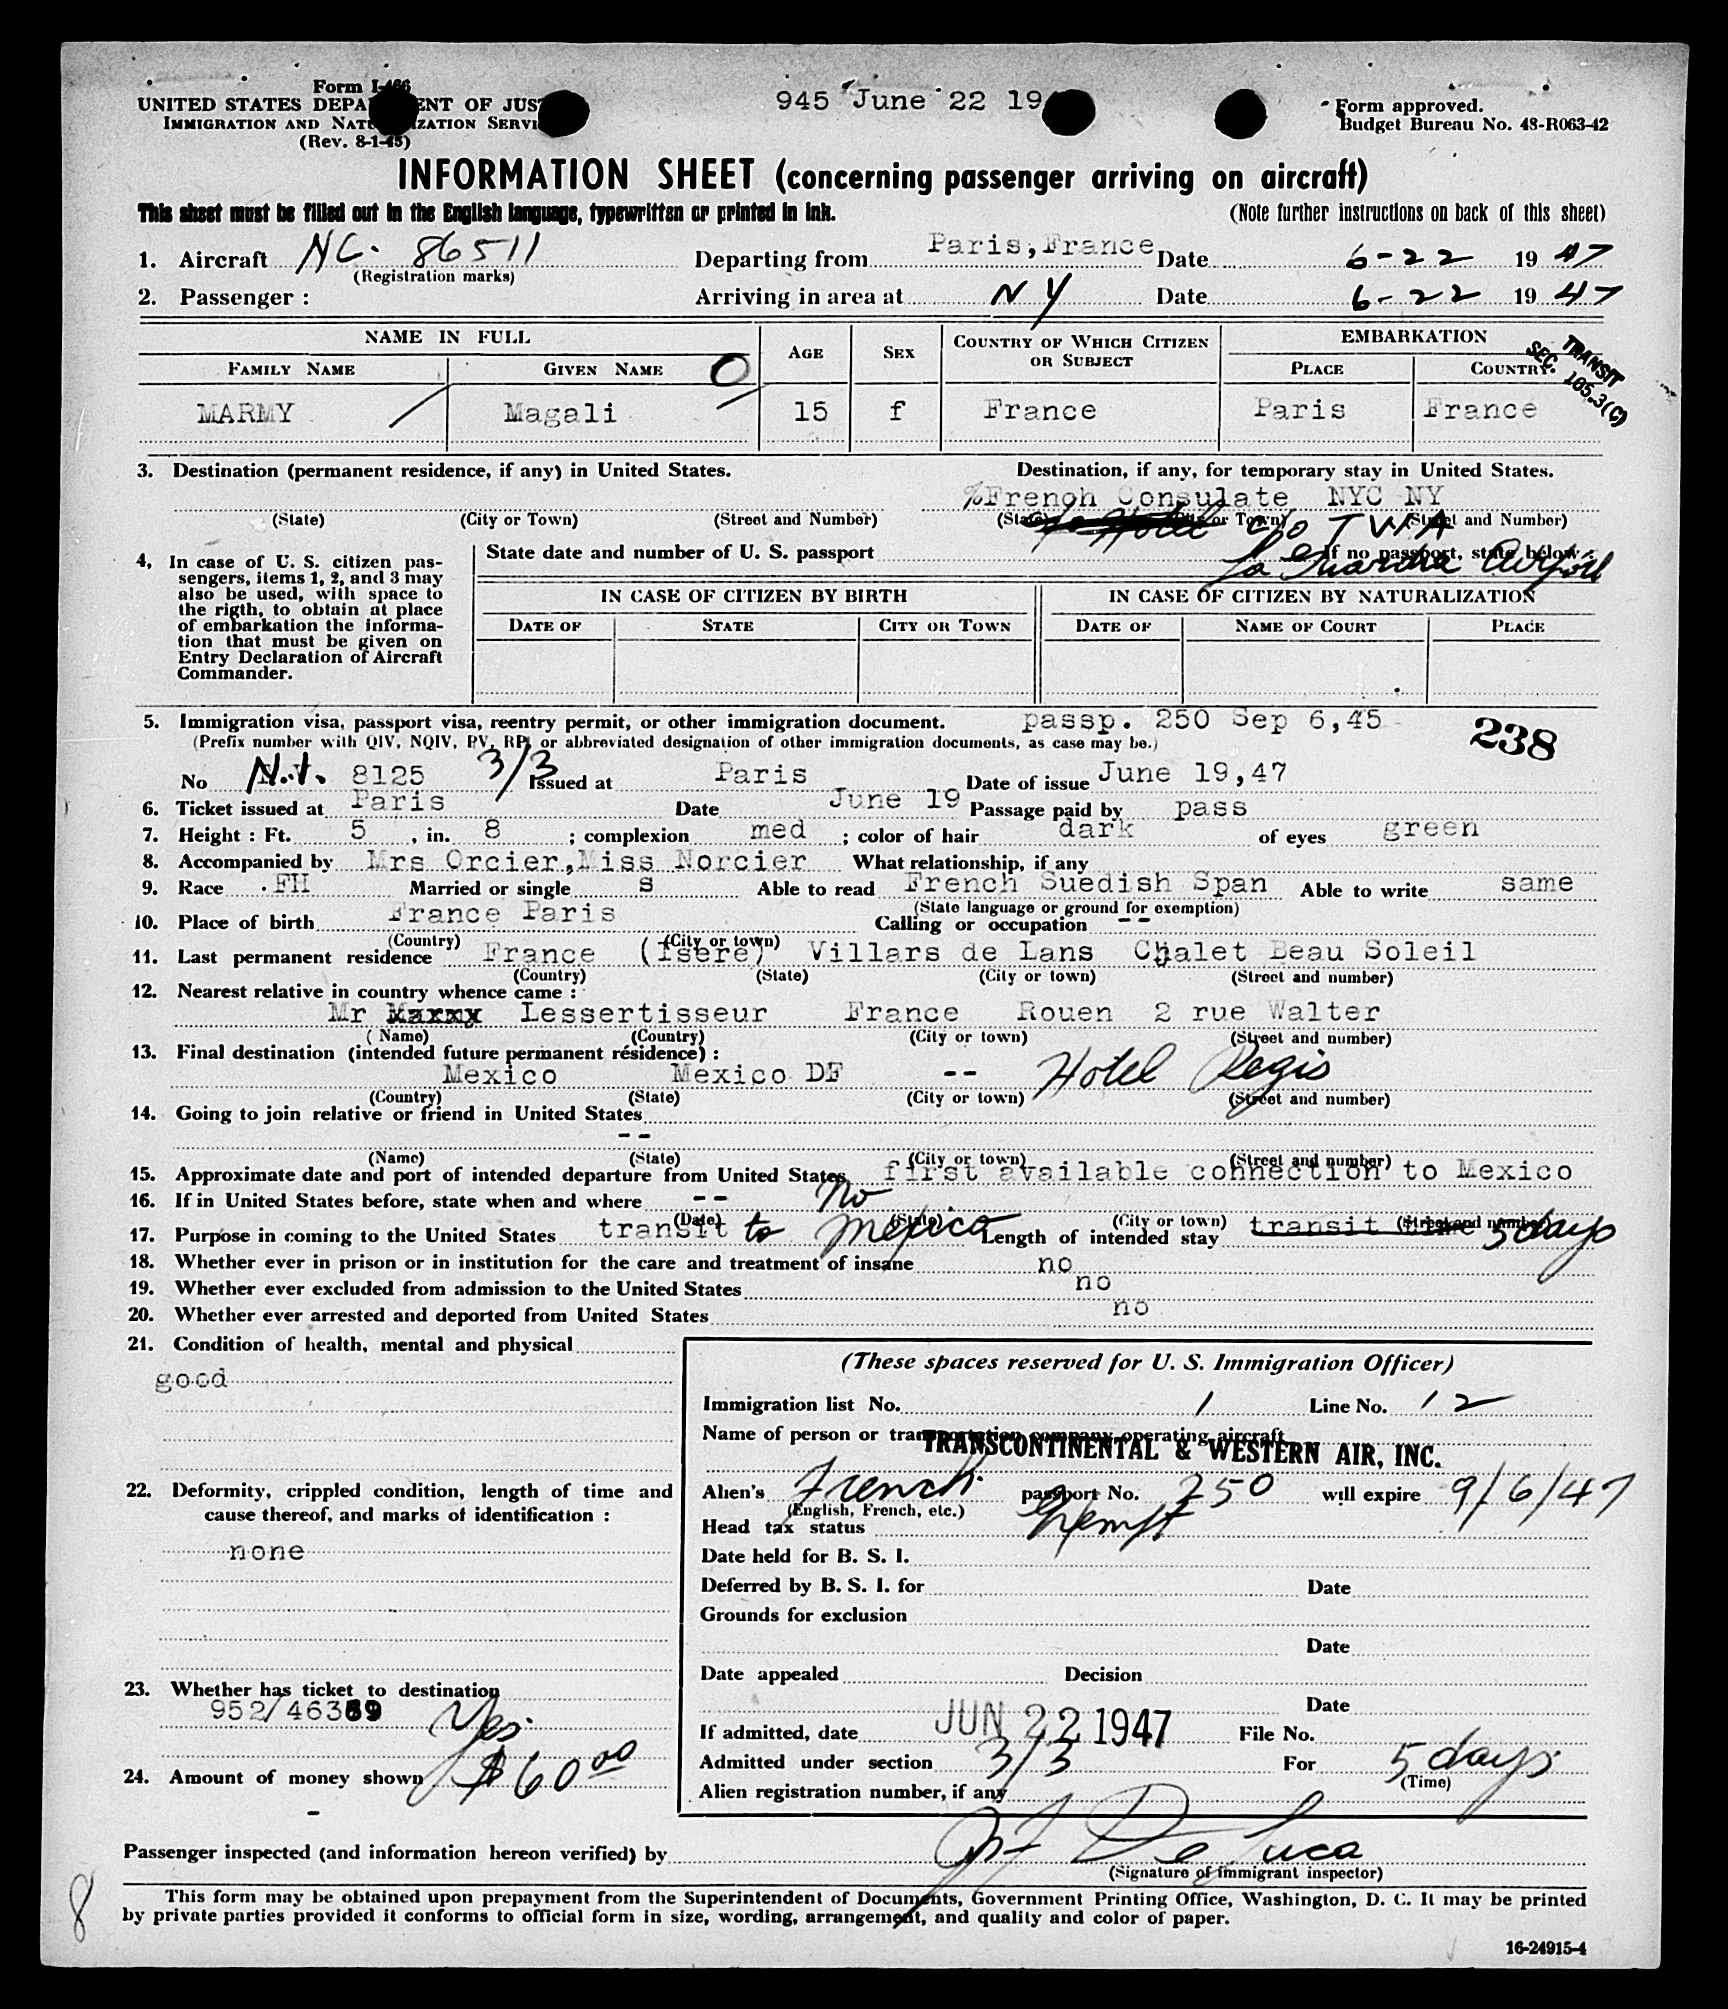 Form I-466
945 June 22 19
Form approved.
UNITED STATES DEPARTMENT OF JUSTICE
Budget Bureau No. 43-R063-42
IMMIGRATION AND NATURALIZATION SERVICE
(Rev. 8-1-45)
INFORMATION SHEET (concerning passenger arriving on aircraft)
This sheet must be filled out in the English language, typewritten or printed in ink. (Note further instructions on back of this sheet)
1. Aircraft NC. 86511 Departing from Paris, France Date 6-22 19 47
(Registration marks)
2. Passenger : Arriving in area at NY Date 6-22 19 47
NAME IN FULL AGE SEX COUNTRY OF WHICH CITIZEN OR SUBJECT EMBARKATION
FAMILY NAME GIVEN NAME O PLACE COUNTRY
TRANSIT
SEC. 105.3(C)
MARMY Magali 15 f France Paris France
3. Destination (permanent residence, if any) in United States. Destination, if any, for temporary stay in United States.
%French Consulate NYC NY
(State) (City or Town) (Street and Number) (State) (City or Town) (Street and Number)
Hotel c/o TWA
La Guardia Airport
4, In case of U. S. citizen pas-
sengers, items 1, 2, and 3 may
also be used, with space to
the rigth, to obtain at place
of embarkation the informa-
tion that must be given on
Entry Declaration of Aircraft
Commander.
State date and number of U. S. passport If no passport, state below:
IN CASE OF CITIZEN BY BIRTH IN CASE OF CITIZEN BY NATURALIZATION
DATE OF STATE CITY OR TOWN DATE OF NAME OF COURT PLACE
5. Immigration visa, passport visa, reentry permit, or other immigration document. passp. 250 Sep 6,45
(Prefix number with QIV, NQIV, PV, RP, or abbreviated designation of other immigration documents, as case may be.)
238
No N.I. 8125 3/3 Issued at Paris Date of issue June 19,47
6. Ticket issued at Paris Date June 19 Passage paid by pass
7. Height : Ft. 5 , in. 8 ; complexion med ; color of hair dark of eyes green
8. Accompanied by Mrs Orcier,Miss Norcier What relationship, if any
9. Race FH Married or single s Able to read French Suedish Span Able to write same
(State language or ground for exemption)
10. Place of birth France Paris Calling or occupation --
(Country) (City or town)
11. Last permanent residence France (Isere) Villars de Lans Chalet Beau Soleil
(Country) (State) (City or town) (Street and number)
12. Nearest relative in country whence came :
Mr Lessertisseur France Rouen 2 rue Walter
(Name) (Country) (City or town) (Street and number)
13. Final destination (intended future permanent résidence) :
Mexico Mexico DF -- Hotel Regis
(Country) (State) (City or town) (Street and number)
14. Going to join relative or friend in United States
--
(Name) (State) (City or town) (Street and number)
15. Approximate date and port of intended departure from United States first available connection to Mexico
16. If in United States before, state when and where -- No
(Date) (State) (City or town) (Street and number)
17. Purpose in coming to the United States transit to Mexico Length of intended stay transit time 5 days
18. Whether ever in prison or in institution for the care and treatment of insane no
19. Whether ever excluded from admission to the United States no
20. Whether ever arrested and deported from United States no
21. Condition of health, mental and physical
good
22. Deformity, crippled condition, length of time and
cause thereof, and marks of identification :
none
23. Whether has ticket to destination
952/46369 Yes.
24. Amount of money shown $60 00
-
(These spaces reserved for U. S. Immigration Officer)
Immigration list No. 1 Line No. 12
Name of person or transportation company operating aircraft
TRANSCONTINENTAL & WESTERN AIR, INC.
Alien's French passport No. 250 will expire 9/6/47
(English, French, etc.)
Head tax status Exempt
Date held for B. S. I.
Deferred by B. S. I. for Date
Grounds for exclusion
Date
Date appealed Decision
Date
If admitted, date JUN 22 1947 File No.
Admitted under section 3/3 For 5 days
(Time)
Alien registration number, if any
Passenger inspected (and information hereon verified) by De Luca
(Signature of immigrant inspector)
8
This form may be obtained upon prepayment from the Superintendent of Documents, Government Printing Office, Washington, D. C. It may be printed
by private parties provided it conforms to official form in size, wording, arrangement, and quality and color of paper.
16-24915-4